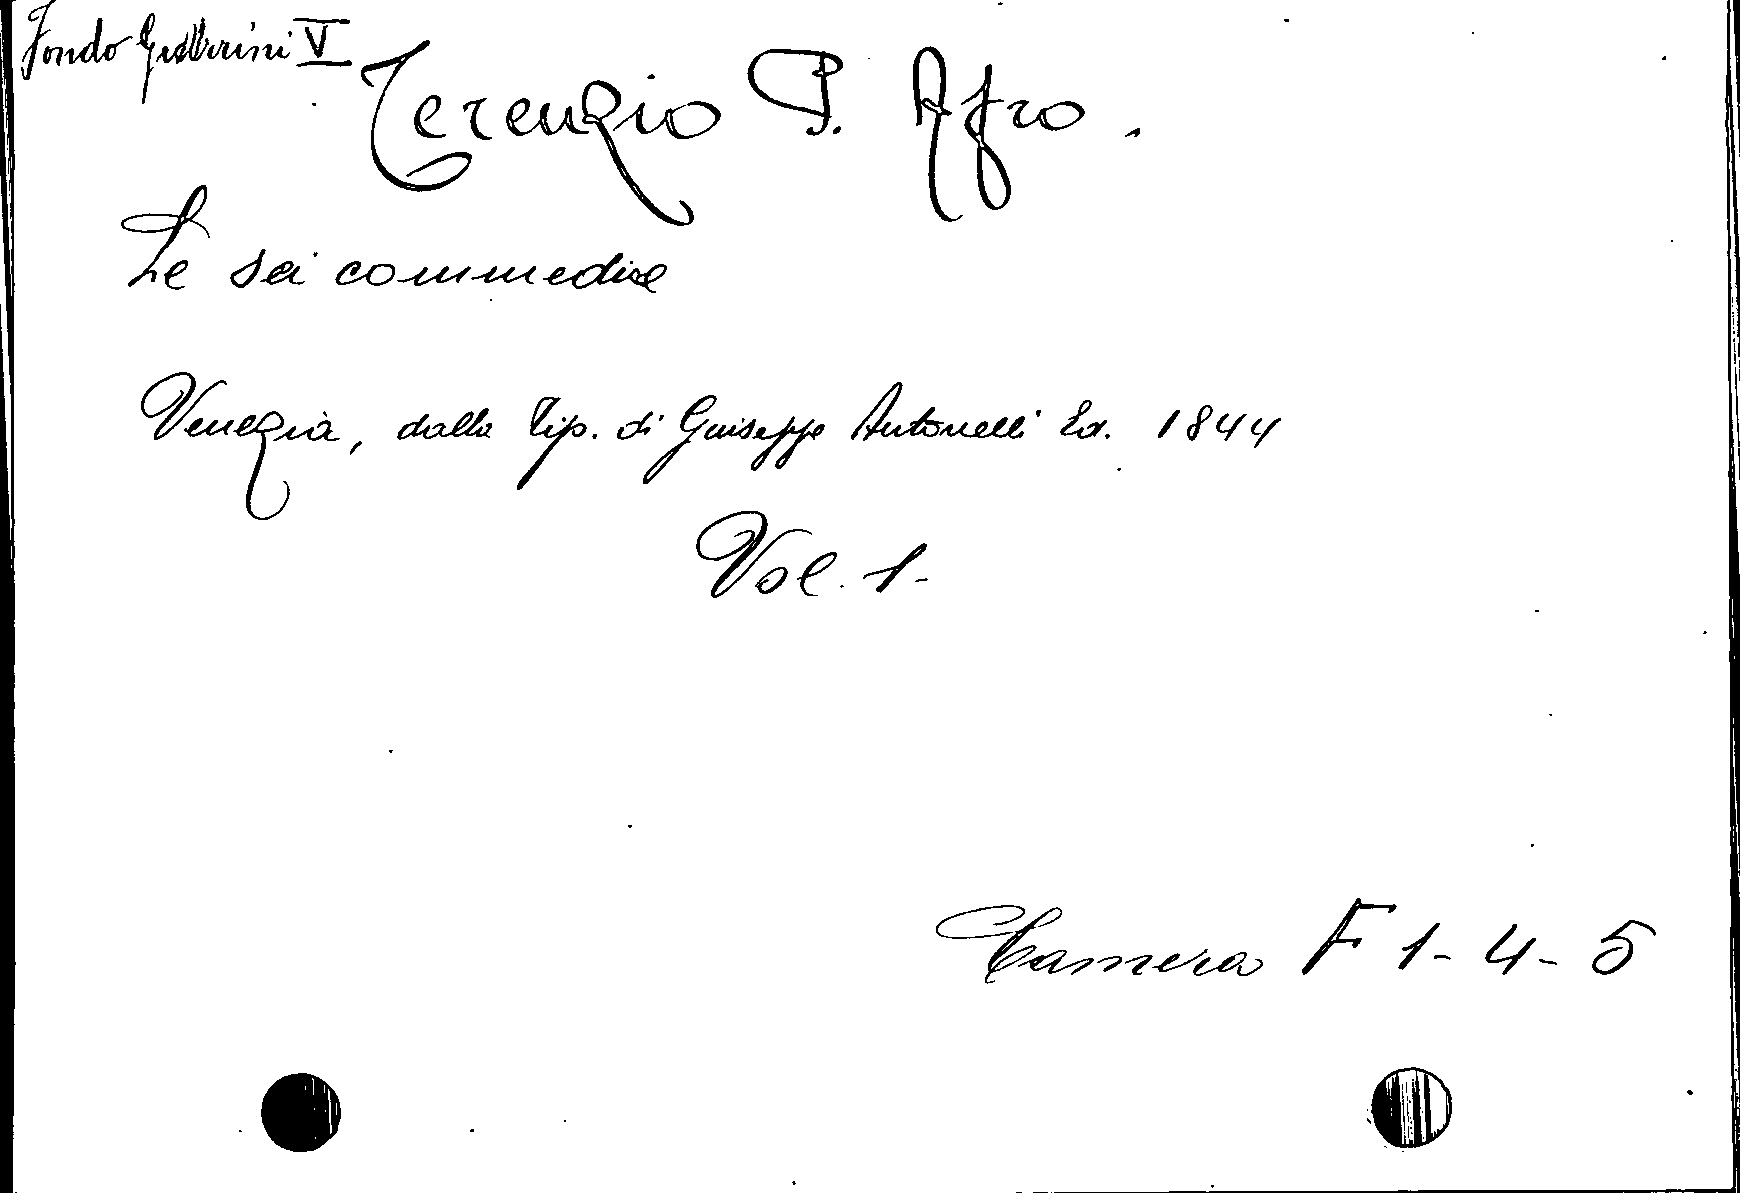 Fondo V
Terenzio P. Afro.
Le sei commedie
Venezia, dalla Tip. di Giuseppe Antonelli Ed. 1844
Vol. 1-
Camera F 1-4-5